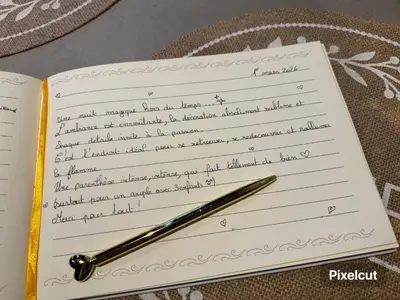 1 mars 2026
Une nuit magique hors du temps...
L'ambiance est incroyable, la décoration absolument sublime et
chaque détail invite à la passion.
C'est l'endroit idéal pour se retrouver, se redécouvrir et rallumer
la flamme.
Une parenthèse intense, intense, qui fait tellement de bien
surtout pour un couple avec 3 enfants
Merci pour tout !
Pixelcut